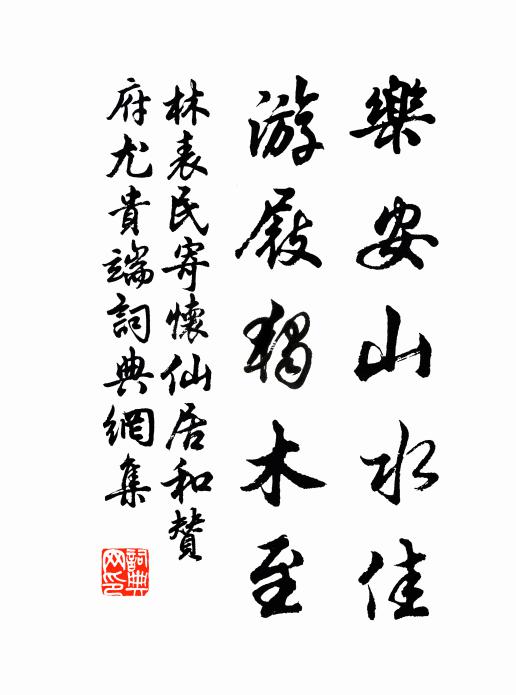 樂安山水佳
游屐獨木至
林表民寄懷仙居和贊
府尤貴端詞典網集
詞典网印